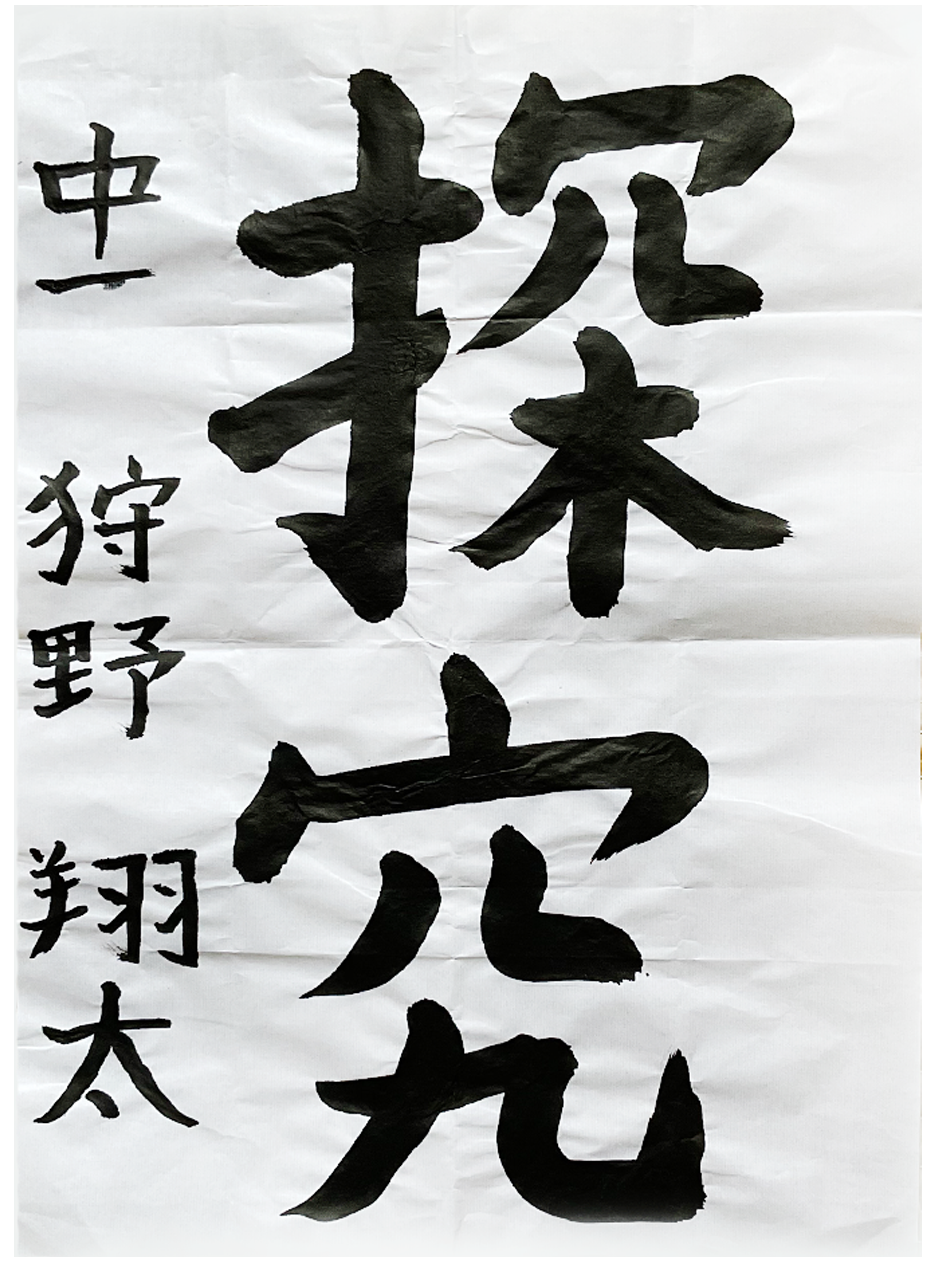 探究
中一 狩野 翔太